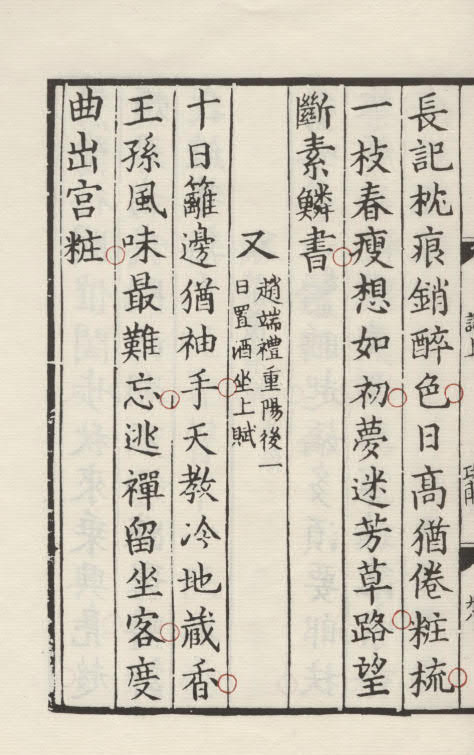 長記枕痕銷醉色日高猶倦粧梳
一枝春瘦想如初夢迷芳草路望
斷素鱗書
又
趙端禮重陽後一
日置酒坐上賦
十日籬邊猶袖手天教冷地蔵香
王孫風味最難忘逃禪留坐客度
曲出宫粧